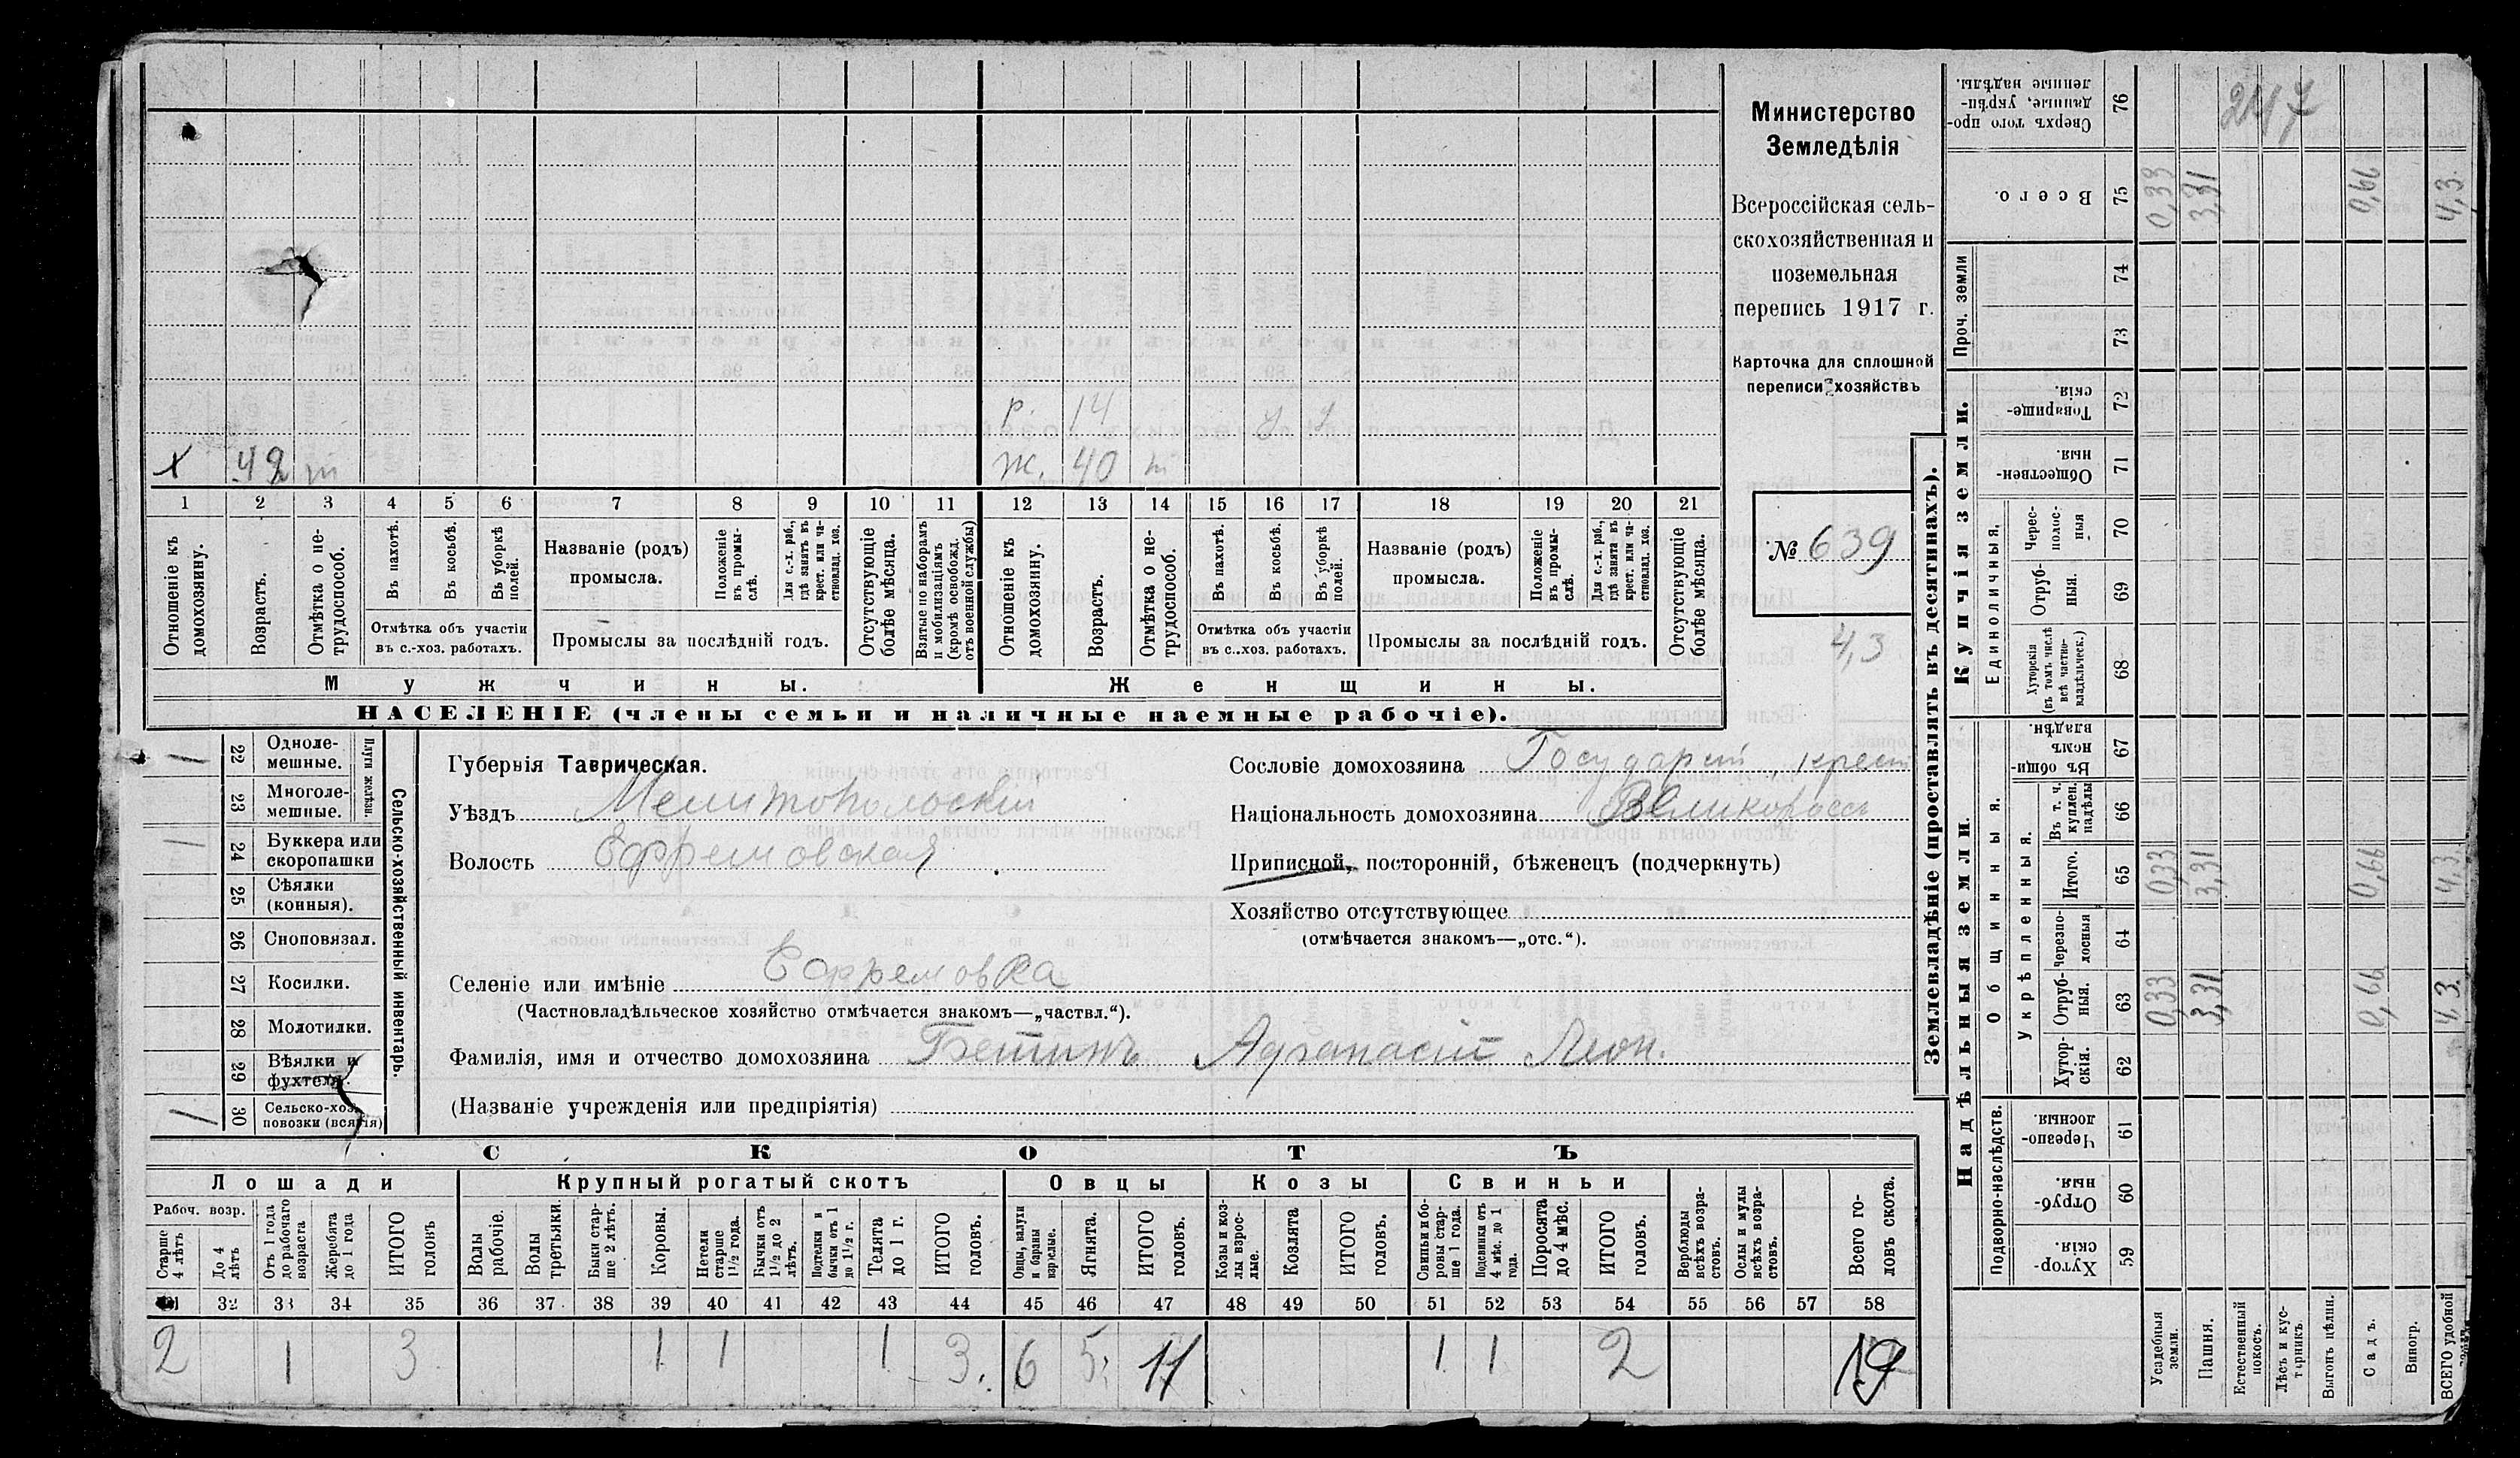 Министерство
Земледѣлія
Всероссійская сель-
скохозяйственная и
поземельная
перепись 1917 г.
Карточка для сплошной
переписи хозяйствъ
№ 639
4,3
р. 14 У У
х 42 ж. 40
1 2 3 4 5 6 7 8 9 10 11 12 13 14 15 16 17 18 19 20 21
Отношеніе къ домохозяину.
Возрастъ.
Отмѣтка о не-трудоспособ.
Въ пахотѣ.
Въ косьбѣ.
Въ уборкѣ полей.
Отмѣтка объ участіи
въ с.-хоз. работахъ.
Названіе (родъ)
промысла.
Положеніе въ промы-слѣ.
Для с.-х. раб., гдѣ занятъ въ крест. или ча-стновлад. хоз.
Промыслы за послѣдній годъ.
Отсутствующіе болѣе мѣсяца.
Взятые по наборамъ и мобилизаціямъ (кромѣ освобожд. отъ военной службы)
Отношеніе къ домохозяину.
Возрастъ.
Отмѣтка о не-трудоспособ.
Въ пахотѣ.
Въ косьбѣ.
Въ уборкѣ полей.
Отмѣтка объ участіи
въ с.-хоз. работахъ.
Названіе (родъ)
промысла.
Положеніе въ промы-слѣ.
Для с.-х. раб., гдѣ занята въ крест. или ча-стновлад. хоз.
Промыслы за послѣдній годъ.
Отсутствующіе болѣе мѣсяца.
Мужчины. Женщины.
НАСЕЛЕНІЕ (члены семьи и наличные наемные рабочіе).
Сельско-хозяйственный инвентарь.
Плуги желѣзн.
1 22 Одноле-мешные.
23 Многоле-мешные.
1 24 Буккера или скоропашки
25 Сѣялки (конныя).
26 Сноповязал.
27 Косилки.
28 Молотилки.
29 Вѣялки и фухтеля.
1 30 Сельско-хоз. повозки (всякія)
Губернія Таврическая.
Уѣздъ Мелитопольскій
Волость Ефремовская
Селеніе или имѣніе Ефремовка
(Частновладѣльческое хозяйство отмѣчается знакомъ—„частвл.“).
Фамилія, имя и отчество домохозяина Бетинъ Афанасій Леон.
(Названіе учрежденія или предпріятія)
Сословіе домохозяина Государст. крест
Національность домохозяина Великоросс
Приписной, посторонній, бѣженецъ (подчеркнуть)
Хозяйство отсутствующее
(отмѣчается знакомъ—„отс.“).
СКОТЪ
Лошади Крупный рогатый скотъ Овцы Козы Свиньи
Рабоч. возр.
Старше 4 лѣтъ
До 4 лѣтъ
Отъ 1 года до рабочаго возраста
Жеребята до 1 года
ИТОГО головъ
Волы рабочіе.
Волы третьяки.
Быки стар-ше 2 лѣтъ.
Коровы.
Нетели старше 1½ года.
Бычки отъ 1½ до 2 лѣтъ.
Подтелки и бычки отъ 1 до 1½ г.
Телята до 1 г.
ИТОГО головъ.
Овцы, валухи и бараны взрослые.
Ягнята.
ИТОГО головъ.
Козы и коз-лы взрос-лые.
Козлята
ИТОГО головъ.
Свиньи и бо-ровы стар-ше 1 года.
Подсвинки отъ 4 мѣс. до 1 года.
Поросята до 4 мѣс.
ИТОГО головъ.
Верблюды всѣхъ возра-стовъ.
Ослы и мулы всѣхъ возра-стовъ.
Всего го-ловъ скота.
32 33 34 35 36 37 38 39 40 41 42 43 44 45 46 47 48 49 50 51 52 53 54 55 56 57 58
2 1 3 1 1 1 3. 6 5 11 1 1 2 19
Землевладѣніе (проставлять въ десятинахъ).
Купчія земли.
Надѣльныя земли.
Сверхъ того про-данные, укрѣп-ленные надѣлы. 76 247
Всего. 75 0,33 3,31 0,66 4,3.
Проч. земли 74 73
Товарище-скія. 72
Обществен-ныя. 71
Единоличныя.
Черес-полос-ныя 70
Отруб-ныя. 69
Хуторскія (въ томъ числѣ всѣ частно-владѣльческ.) 68
Общинныя.
Въ общин-номъ владѣн. 67
Укрѣпленныя.
Въ т. ч. куплен. надѣлы 66
Итого. 65 0,33 3,31 0,66 4,3.
Черезпо-лосныя 64
Отруб-ныя. 63 0,33 3,31 0,66 4,3.
Хутор-скія. 62
Подворно-наслѣдств.
Черезпо-лосныя 61
Отруб-ныя. 60
Хутор-скія. 59
Усадебныя земли.
Пашня.
Естественный покосъ.
Лѣсъ и кус-тарникъ.
Выгонъ цѣлин.
Садъ.
Виногр.
ВСЕГО удобной